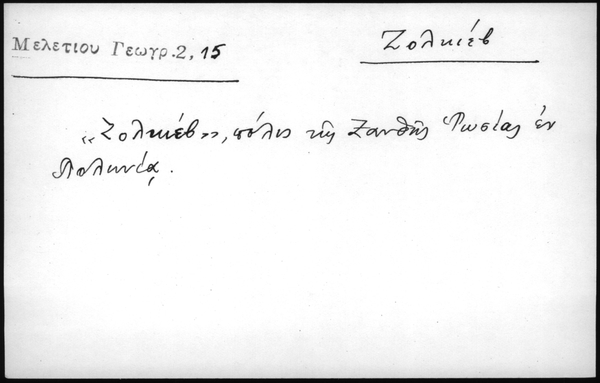 Μελετίου Γεωγρ. 2, 15
Ζολκιέβ
«Ζολκιέβ», πόλις τῆς Ξανθῆς Ῥωσίας ἐν
Πολωνίᾳ.